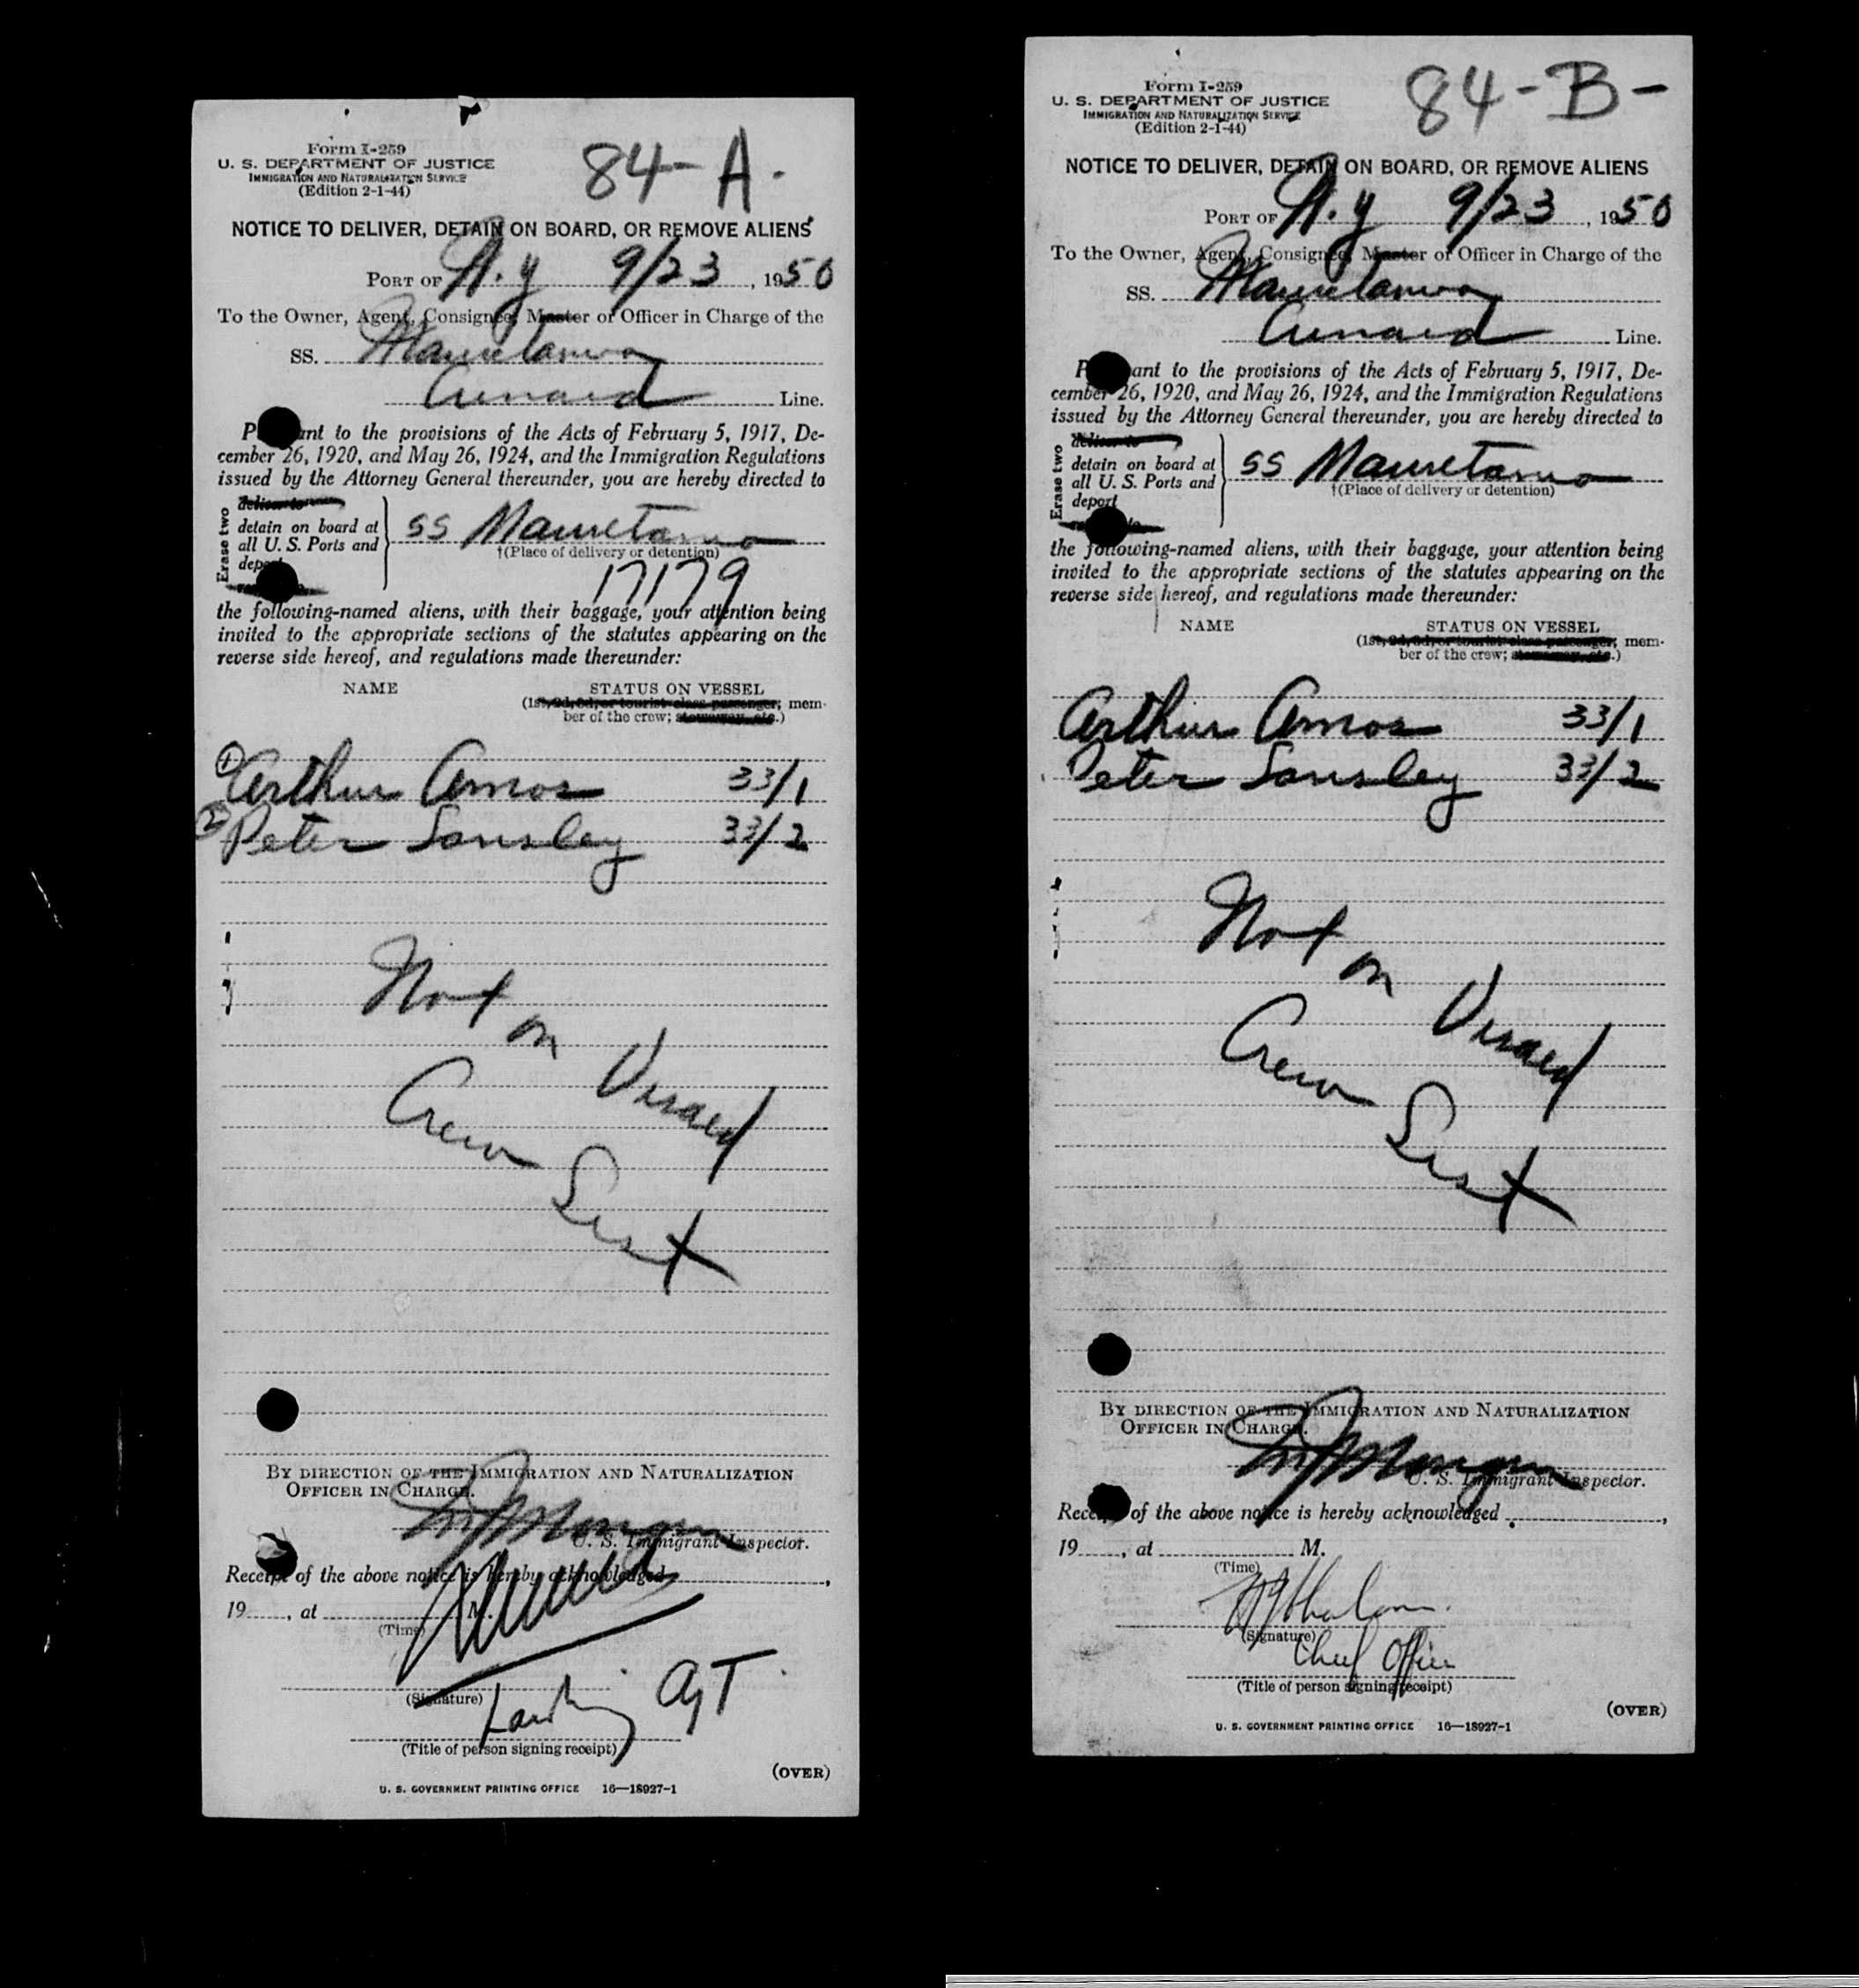 84-A.
Form I-259
U. S. DEPARTMENT OF JUSTICE
IMMIGRATION AND NATURALIZATION SERVICE
(Edition 2-1-44)
NOTICE TO DELIVER, DETAIN ON BOARD, OR REMOVE ALIENS
PORT OF N.Y 9/23, 1950
To the Owner, Agent, Consignee, Master or Officer in Charge of the
SS. Mauretania
Cunard Line.
P ant to the provisions of the Acts of February 5, 1917, De-
cember 26, 1920, and May 26, 1924, and the Immigration Regulations
issued by the Attorney General thereunder, you are hereby directed to
Erase two
deliver to
detain on board at
all U. S. Ports and
deport
SS Mauretania
†(Place of delivery or detention)
17179
the following-named aliens, with their baggage, your attention being
invited to the appropriate sections of the statutes appearing on the
reverse side hereof, and regulations made thereunder:
NAME STATUS ON VESSEL
(1st, 2d, 3d, or tourist class passenger; mem-
ber of the crew; stowaway, etc.)
1 Arthur Amos 33/1
2 Peter Sansley 33/2
Not on Visaed
Crew List
BY DIRECTION OF THE IMMIGRATION AND NATURALIZATION
OFFICER IN CHARGE.
U. S. Immigrant Inspector.
Receipt of the above notice is hereby acknowledged
19 , at M.
(Time)
(Signature)
Landing AgT.
(Title of person signing receipt)
(OVER)
U. S. GOVERNMENT PRINTING OFFICE 16—18927-1
84-B-
Form I-259
U. S. DEPARTMENT OF JUSTICE
IMMIGRATION AND NATURALIZATION SERVICE
(Edition 2-1-44)
NOTICE TO DELIVER, DETAIN ON BOARD, OR REMOVE ALIENS
PORT OF N.Y 9/23, 1950
To the Owner, Agent, Consignee, Master or Officer in Charge of the
SS. Mauretania
Cunard Line.
P ant to the provisions of the Acts of February 5, 1917, De-
cember 26, 1920, and May 26, 1924, and the Immigration Regulations
issued by the Attorney General thereunder, you are hereby directed to
Erase two
deliver to
detain on board at
all U. S. Ports and
deport
SS Mauretania
†(Place of delivery or detention)
the following-named aliens, with their baggage, your attention being
invited to the appropriate sections of the statutes appearing on the
reverse side hereof, and regulations made thereunder:
NAME STATUS ON VESSEL
(1st, 2d, 3d, or tourist class passenger; mem-
ber of the crew; stowaway, etc.)
Arthur Amos 33/1
Peter Sansley 33/2
Not on Visaed
Crew List
BY DIRECTION OF THE IMMIGRATION AND NATURALIZATION
OFFICER IN CHARGE.
U. S. Immigrant Inspector.
Receipt of the above notice is hereby acknowledged
19 , at M.
(Time)
(Signature)
Chief Officer
(Title of person signing receipt)
(OVER)
U. S. GOVERNMENT PRINTING OFFICE 16—18927-1